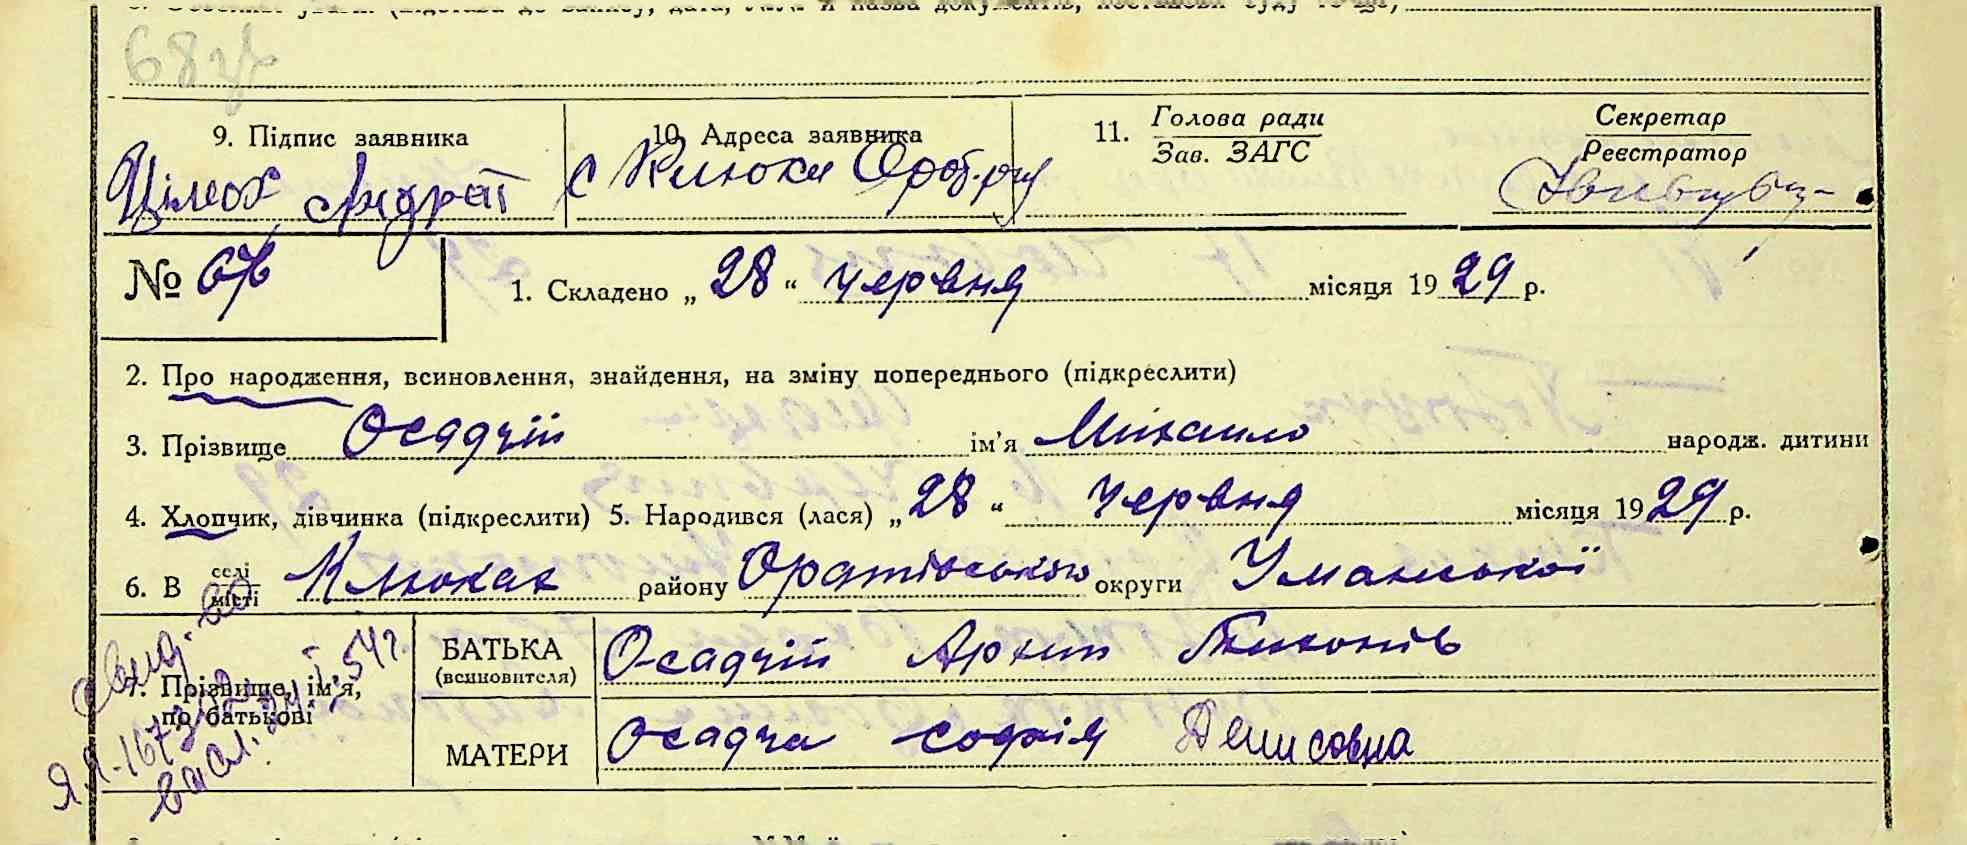 9. Підпис заявника
10. Адреса заявника
11. Голова ради
Зав. ЗАГС
Секретар
Реєстратор
Андрей
с Клюки
№ 67
1. Складено „ 28 “ червня місяця 1929 р.
2. Про народження, всиновлення, знайдення, на зміну попереднього (підкреслити)
3. Прізвище Осадчій ім’я Михаило народж. дитини
4. Хлопчик, дівчинка (підкреслити) 5. Народився (лася) „ 28 “ червня місяця 1929 р.
6. В селі місті Клюках району Оратівського округи Уманської
7. Прізвище, ім’я, по батькові
БАТЬКА (всиновителя) Осадчій Архип Тихонів
МАТЕРИ Осадча Софія Денисовна